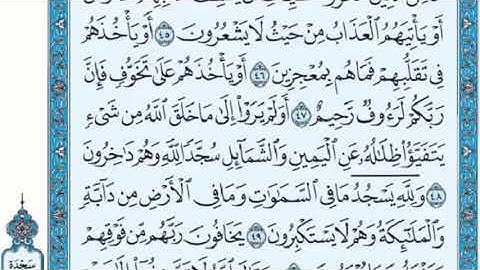 أَوْ يَأْتِيَهُمُ ٱلْعَذَابُ مِنْ حَيْثُ لَا يَشْعُرُونَ ٤٥ أَوْ يَأْخُذَهُمْ
فِى تَقَلُّبِهِمْ فَمَا هُم بِمُعْجِزِينَ ٤٦ أَوْ يَأْخُذَهُمْ عَلَىٰ تَخَوُّفٍ فَإِنَّ
رَبَّكُمْ لَرَءُوفٌ رَّحِيمٌ ٤٧ أَوَلَمْ يَرَوْا۟ إِلَىٰ مَا خَلَقَ ٱللَّهُ مِن شَىْءٍ
يَتَفَيَّؤُا۟ ظِلَـٰلُهُۥ عَنِ ٱلْيَمِينِ وَٱلشَّمَآئِلِ سُجَّدًا لِّلَّهِ وَهُمْ دَٰخِرُونَ
٤٨ وَلِلَّهِ يَسْجُدُ مَا فِى ٱلسَّمَـٰوَٰتِ وَمَا فِى ٱلْأَرْضِ مِن دَآبَّةٍ
وَٱلْمَلَـٰٓئِكَةُ وَهُمْ لَا يَسْتَكْبِرُونَ ٤٩ يَخَافُونَ رَبَّهُم مِّن فَوْقِهِمْ
سَجْدَة